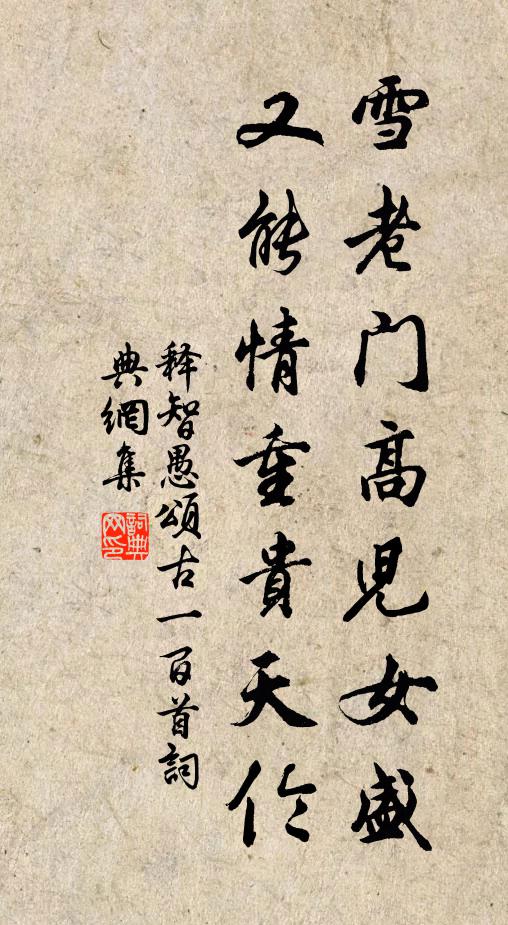 雪老门高児女盛
又能情重貴天伦
释智愚頌古一百首詞
典網集
詞典
网印